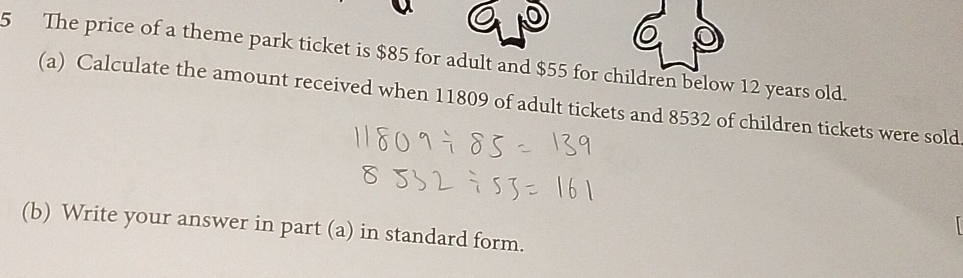 5 The price of a theme park ticket is $85 for adult and $55 for children below 12 years old.
(a) Calculate the amount received when 11809 of adult tickets and 8532 of children tickets were sold.
11809 ÷ 85 = 139
8532 ÷ 53 = 161
(b) Write your answer in part (a) in standard form.
[